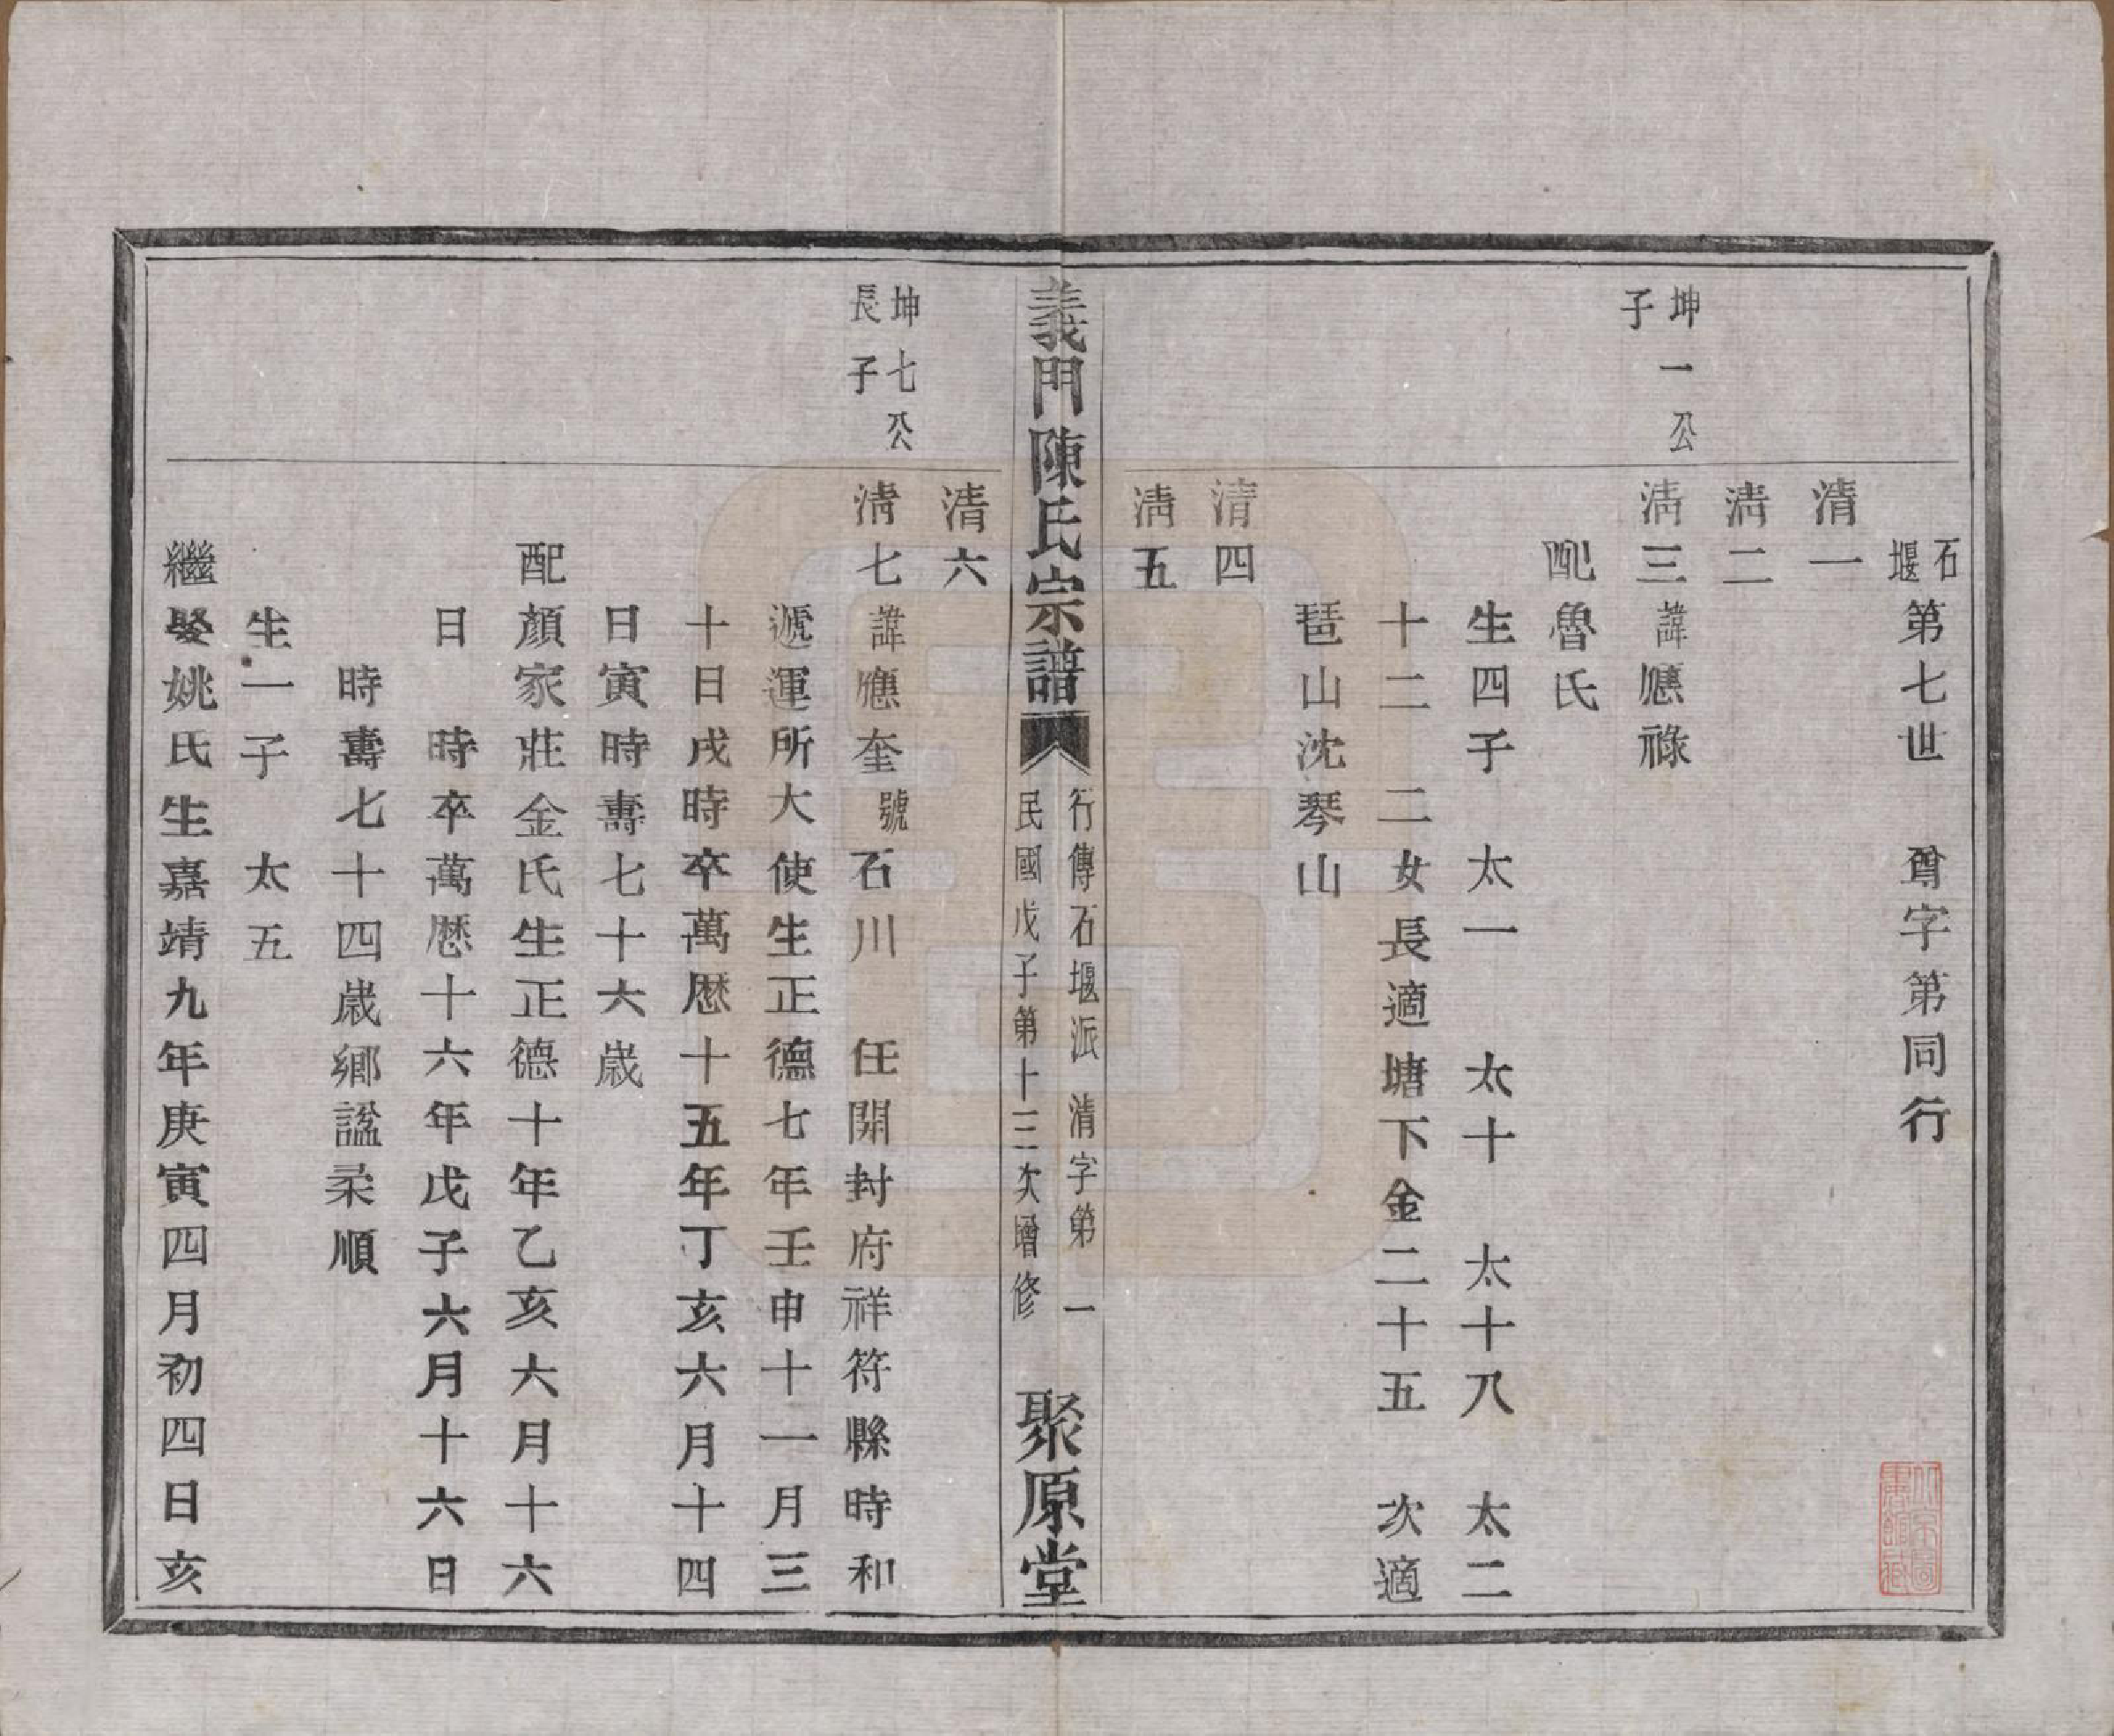 石堰第七世　尊字第同行
清一
清二
坤一公子
清三諱應祿
配魯氏
生四子　太一　太十　太十八　太二
十二　二女長適塘下金二十五　次適
琶山沈琴山
清四
清五
義門陳氏宗譜
行傳石堰派　清字第　一
民國戊子第十三次增修
聚原堂
清六
坤七公長子
清七諱應奎號石川　任開封府祥符縣時和
遞運所大使生正德七年壬申十一月三
十日戌時卒萬曆十五年丁亥六月十四
日寅時壽七十六歲
配顏家莊金氏生正德十年乙亥六月十六
日　時卒萬曆十六年戊子六月十六日
時壽七十四歲鄉謚柔順
生一子　太五
繼娶姚氏生嘉靖九年庚寅四月初四日亥